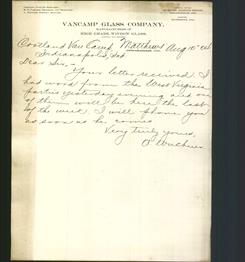 VANCAMP GLASS COMPANY,
MANUFACTURERS OF
HIGH GRADE WINDOW GLASS.
Cortland Van Camp, Matthews Aug 10
Indianapolis, Ind
Dear Sir:-
Your letter received. I
had word from the West Virginia
parties yesterday evening and one
of them will be here the last
of the week. I will phone you
as soon as he comes
Very truly yours,